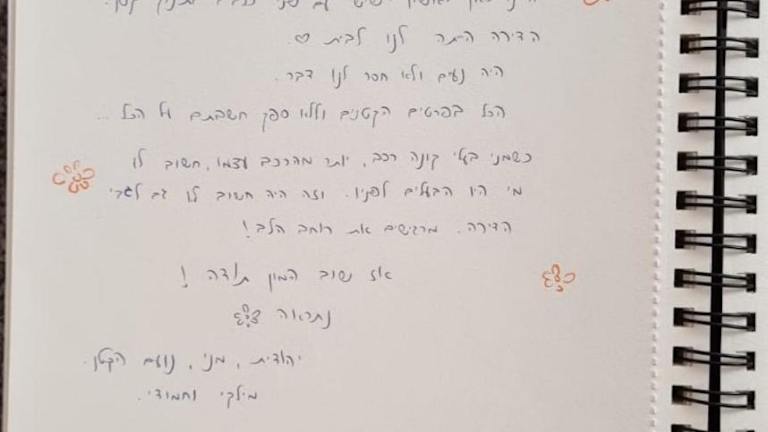 הדירה היתה לנו לבית ♡.
היה נעים ולא חסר לנו דבר.
הכל בפרטים הקטנים וללא ספק חשבתם על הכל ...
כשמני בעלי קונה רכב, יותר מהרכב עצמו, חשוב לו
מי היו הבעלים לפניו. וזה היה חשוב לו גם לגבי
הדירה. מרגישים את רוחב הלב!
אז נשוב המון תודה!
נתראה
יהודית, מני, נועם הקטן.
מילקי וחמודי.